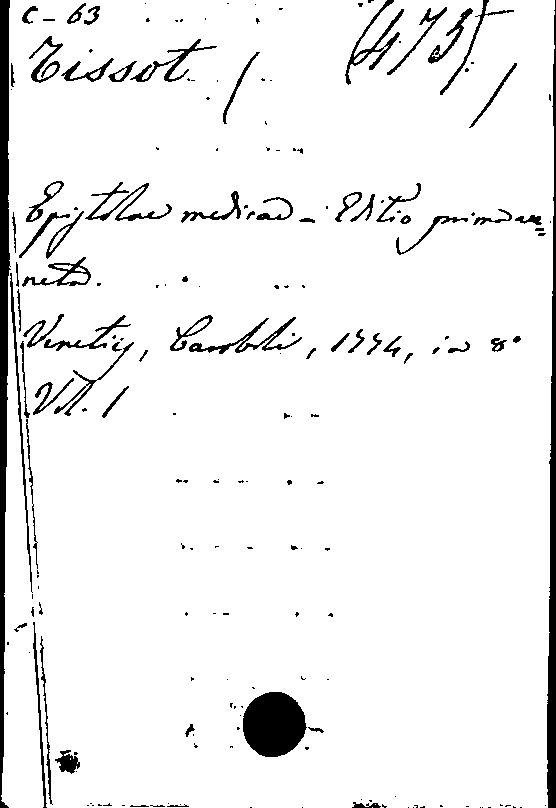 C - 63
Tissot / (473) /
Epistolae medicae - Editio prima ve=
neta.
Venetiis, Caroboli, 1774, in 8°
Vol. 1